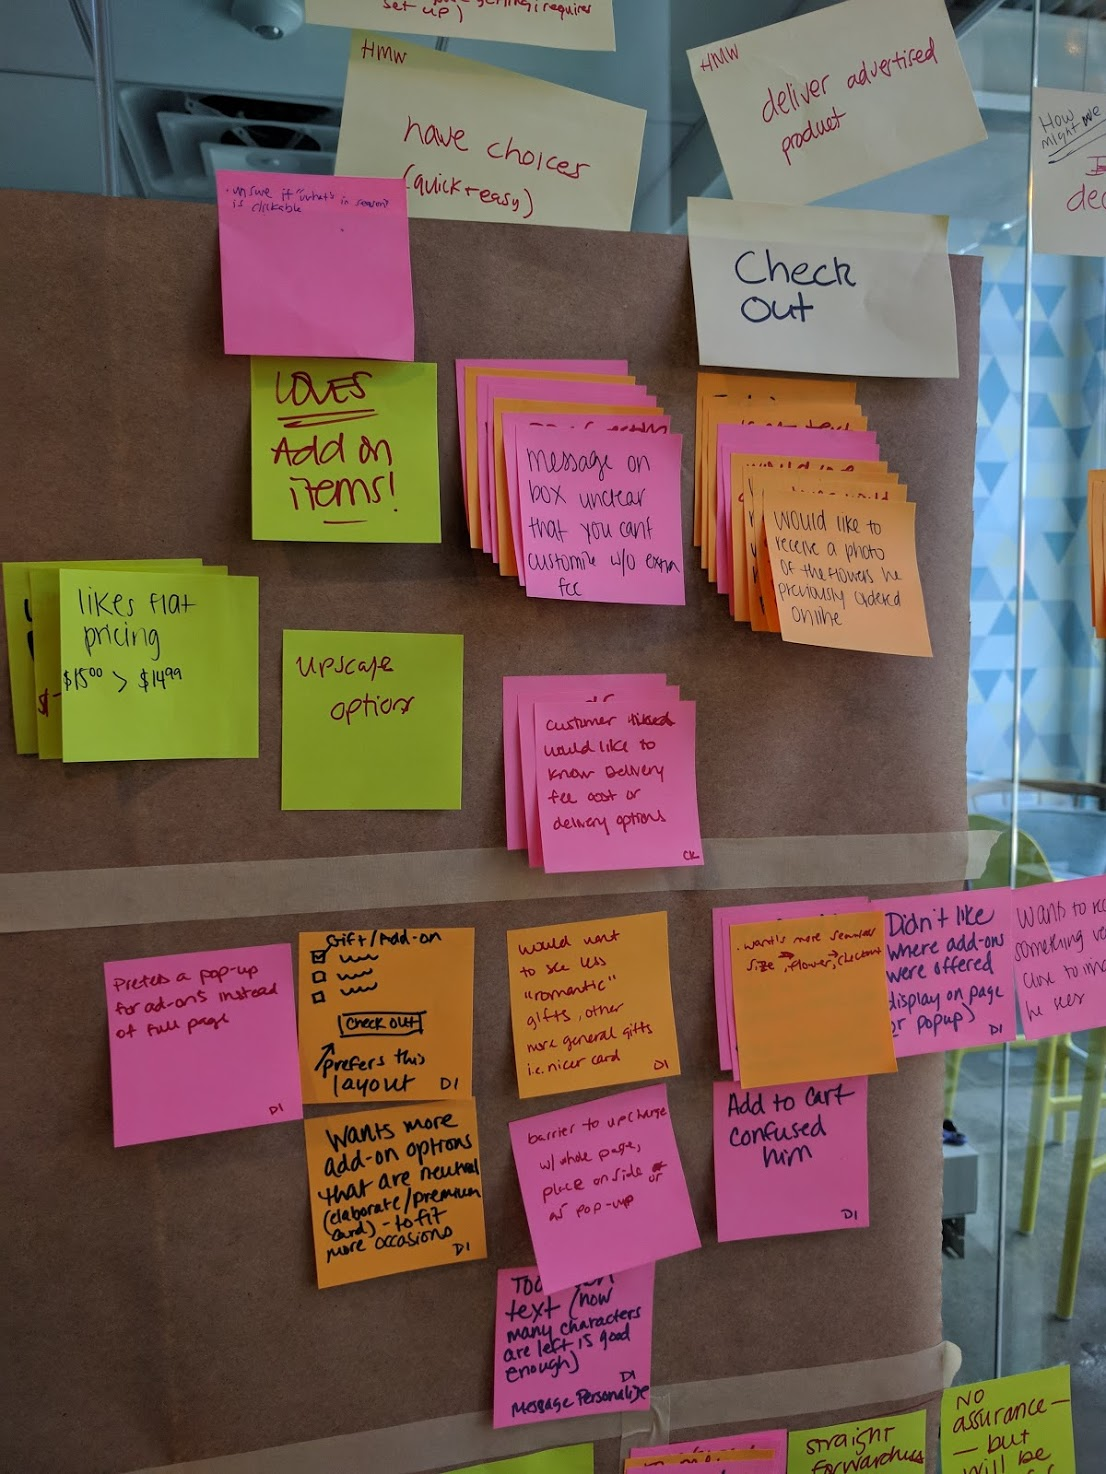 set up)
HMW
have choices
(quick + easy)
HMW
deliver advertised
product
How
might we
• unsure if "what's in season"
is clickable
Check
Out
LOVES
Add on
items!
message on
box unclear
that you cant
customize w/o extra
fee
Would like to
receive a photo
of the flowers he
previously ordered
online
likes flat
pricing
$15.00 > $14.99
upscale
options
customer liked
would like to
know Delivery
fee cost or
delivery options
CK
Prefers a pop-up
for ad-on's instead
of full page
DI
Gift/Add-on
Check out
prefers this
layout DI
would want
to see less
"romantic"
gifts, other
more general gifts
i.e. nicer card
DI
size → flower → checkout
Didn't like
where add-ons
were offered
display on page
or popup)
DI
Wants to
something
close to
he sees
Wants more
add-on options
that are neutral
(elaborate/premium
card) - to fit
more occasions
DI
barrier to upcharge
w/ whole page,
place on side or
as pop-up
Add to cart
confused
him
DI
text (how
many characters
are left is good
enough)
DI
Message Personalize
straight
forwardness
No
assurance —
— but
will be